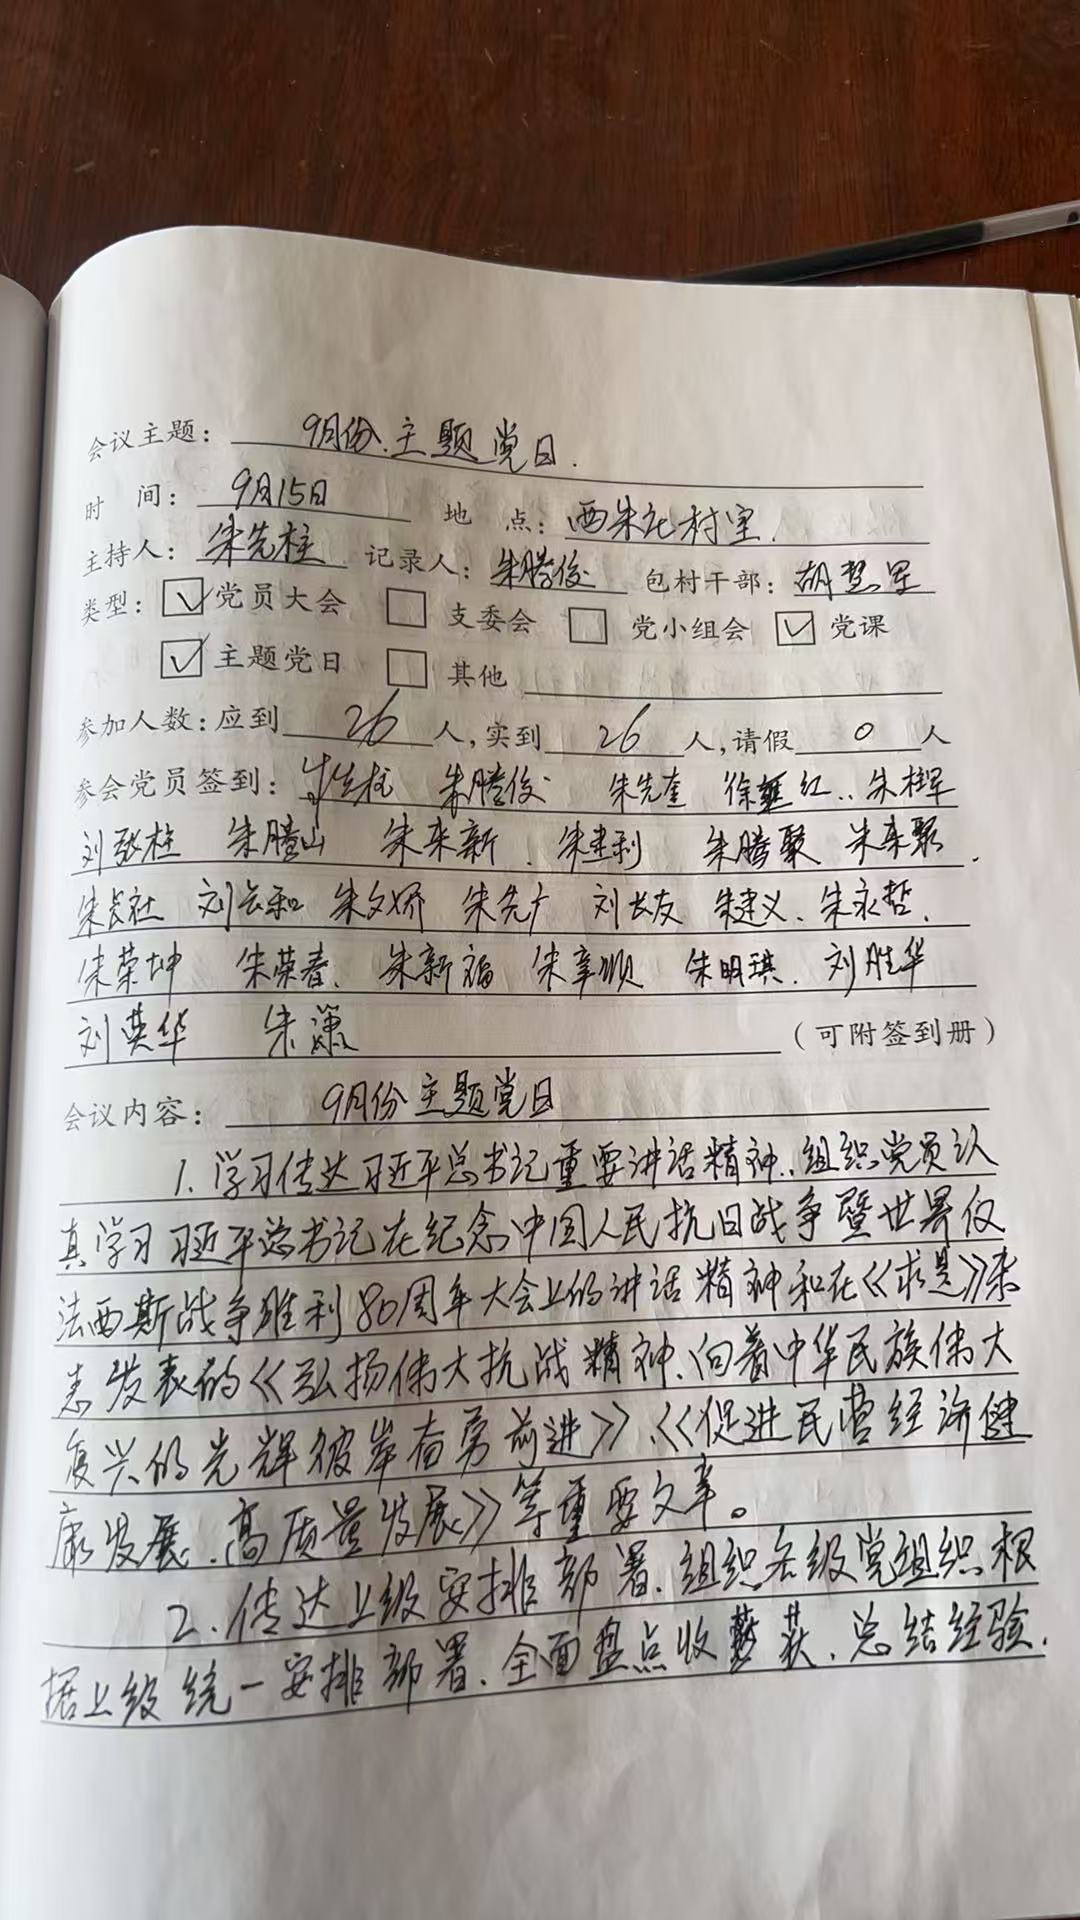 会议主题： 9月份、主题党日.
时 间： 9月15日 地 点： 西朱社村室.
主持人： 朱先柱 记录人： 朱腾俊 包村干部： 胡慧军
类型： ☑党员大会 ☐支委会 ☐党小组会 ☑党课
☑主题党日 ☐其他
参加人数：应到 26 人,实到 26 人,请假 0 人
参会党员签到： 朱先柱 朱腾俊 朱先奎 徐 红 朱桂军
刘致柱 朱腾山 朱来新 朱建利 朱腾聚 朱来聚
朱长社 刘云和 朱文娇 朱先广 刘长友 朱建义 朱永哲
朱荣坤 朱荣春 朱新福 朱孝顺 朱明琪 刘胜华
刘英华 朱潇 （可附签到册）
会议内容： 9月份主题党日
1.学习传达习近平总书记重要讲话精神、组织党员认
真学习习近平总书记在纪念中国人民抗日战争暨世界反
法西斯战争胜利80周年大会上的讲话精神和在《求是》杂
志发表的《弘扬伟大抗战精神、向着中华民族伟大
复兴的光辉彼岸奋勇前进》、《促进民营经济健
康发展、高质量发展》等重要文章。
2.传达上级安排部署、组织各级党组织根
据上级统一安排部署、全面盘点收获、总结经验、